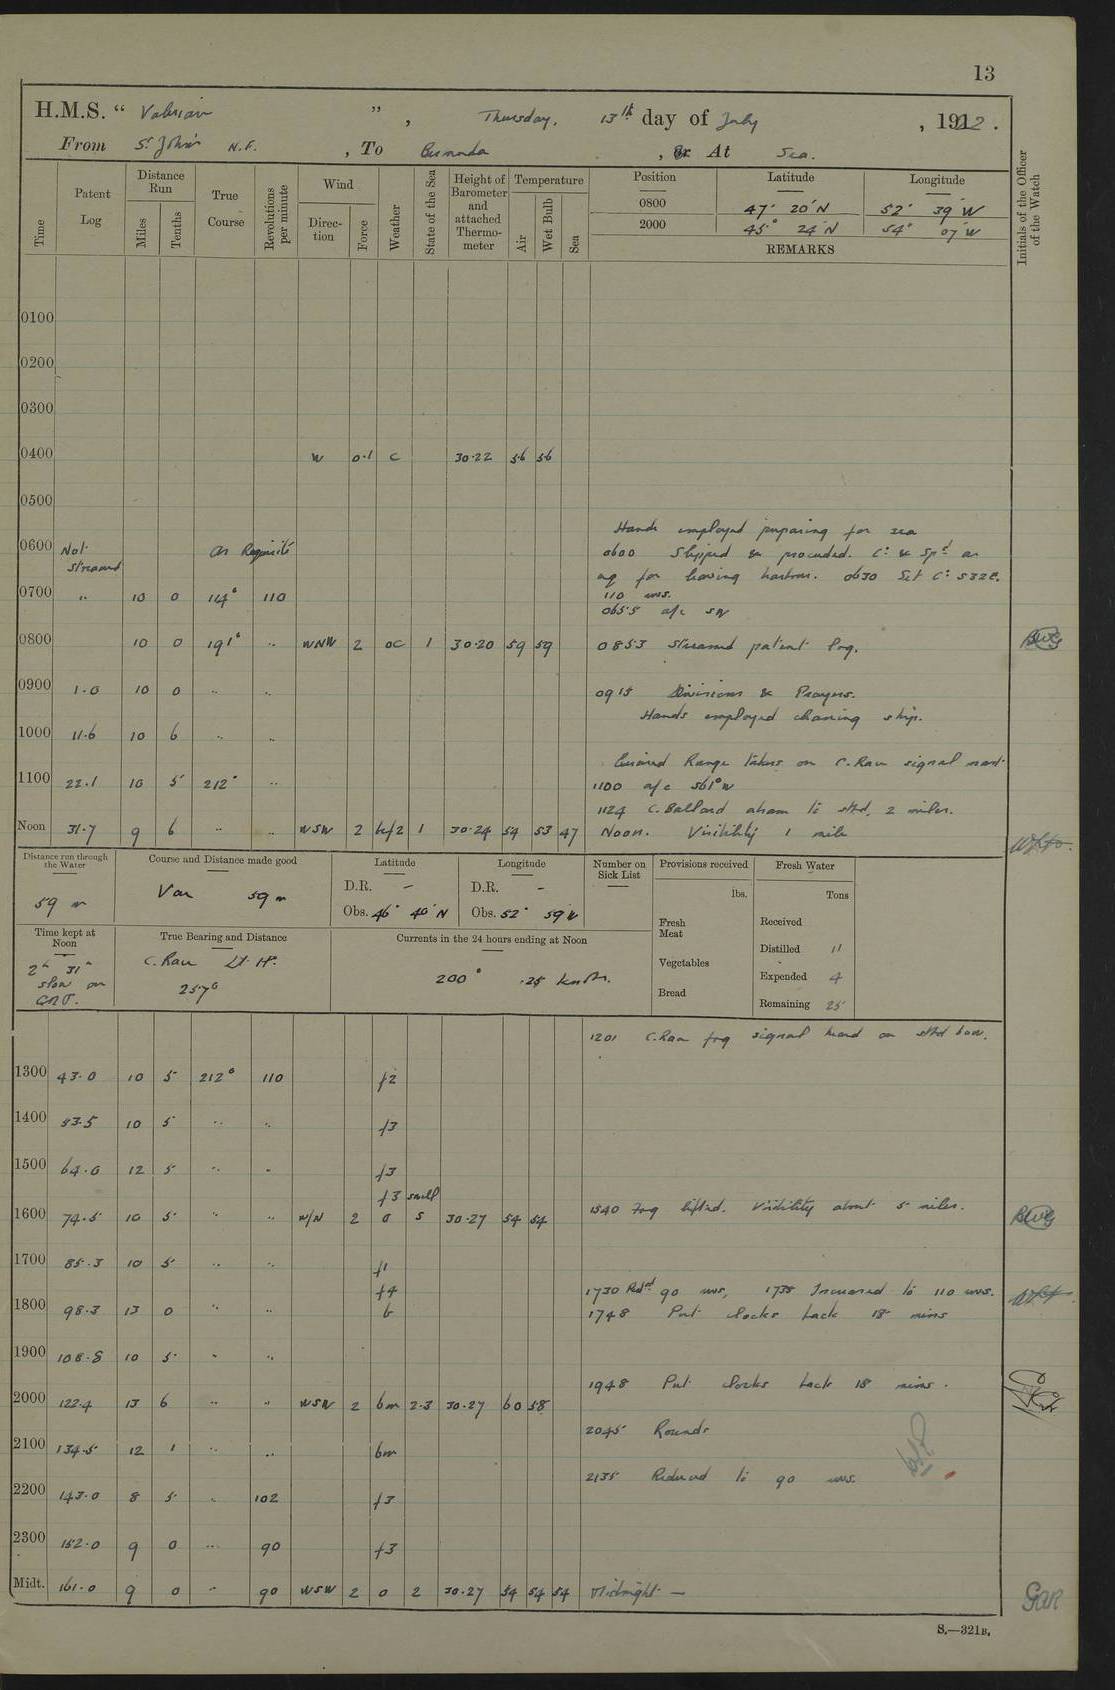 13
H.M.S. “ Valerian ” , Thursday, 13th day of July , 1922.
From St John's N.F. , To Bermuda , Or At Sea.
Time
Patent Log
Distance Run
Miles
Tenths
True Course
Revolutions per minute
Wind
Direction
Force
Weather
State of the Sea
Height of Barometer and attached Thermometer
Temperature
Air
Wet Bulb
Sea
Position Latitude Longitude
0800 47° 20' N 52° 39' W
2000 45° 24' N 54° 07' W
REMARKS
Initials of the Officer of the Watch
0100
0200
0300
0400 W 0.1 c 30.22 56 56
0500
Hands employed preparing for sea
0600 Not streamed as Requisite 0600 Slipped & proceeded. Co: & Spd as
req for leaving harbour. 0630 Set Co: S32E.
0700 " 10 0 114° 110 110 revs.
0655 a/c SW
0800 10 0 191° " WNW 2 oc 1 30.20 59 59 0853 Streamed patent log.
0900 1.0 10 0 " " 0915 Divisions & Prayers.
Hands employed cleaning ship.
1000 11.6 10 6 " "
Range taken on C. Race signal mast
1100 22.1 10 5 212° " 1100 a/c S61°W
1124 C. Ballard abeam to stbd, 2 miles.
Noon 31.7 9 6 " " WSW 2 1 30.24 54 53 47 Noon. Visibility 1 mile
Distance run through the Water
59 m
Course and Distance made good
Var 59 m
Latitude
D.R. -
Obs. 46° 40' N
Longitude
D.R. -
Obs. 52° 59' W
Number on Sick List
Provisions received
lbs.
Fresh Meat
Vegetables
Bread
Fresh Water
Tons
Received
Distilled 11
Expended 4
Remaining 25
Time kept at Noon
2h 31m
slow on
GMT.
True Bearing and Distance
C. Race Lt. H.
257°
Currents in the 24 hours ending at Noon
200° .25 knots.
1201 C. Race fog signal heard on stbd bow.
1300 43.0 10 5 212° 110 f2
1400 53.5 10 5 " " f3
1500 64.0 12 5 " " f3
f3 swell
1600 74.5 10 5 " " W/N 2 o 5 30.27 54 54 1540 Fog lifted. Visibility about 5 miles.
1700 85.3 10 5 " " f1
f4 1730 Redd 90 revs, 1738 Increased to 110 revs.
1800 98.3 13 0 " " b 1748 Put clocks back 18 mins
1900 108.8 10 5 " "
1948 Put clocks back 18 mins.
2000 122.4 13 6 " " WSW 2 bm 2.3 30.27 60 58
2045 Rounds
2100 134.5 12 1 " " bm
2135 Reduced to 90 revs
2200 143.0 8 5 " 102 f3
2300 152.0 9 0 " 90 f3
Midt. 161.0 9 0 " 90 WSW 2 o 2 30.27 54 54 54 Midnight —
GWR
S.—321B.